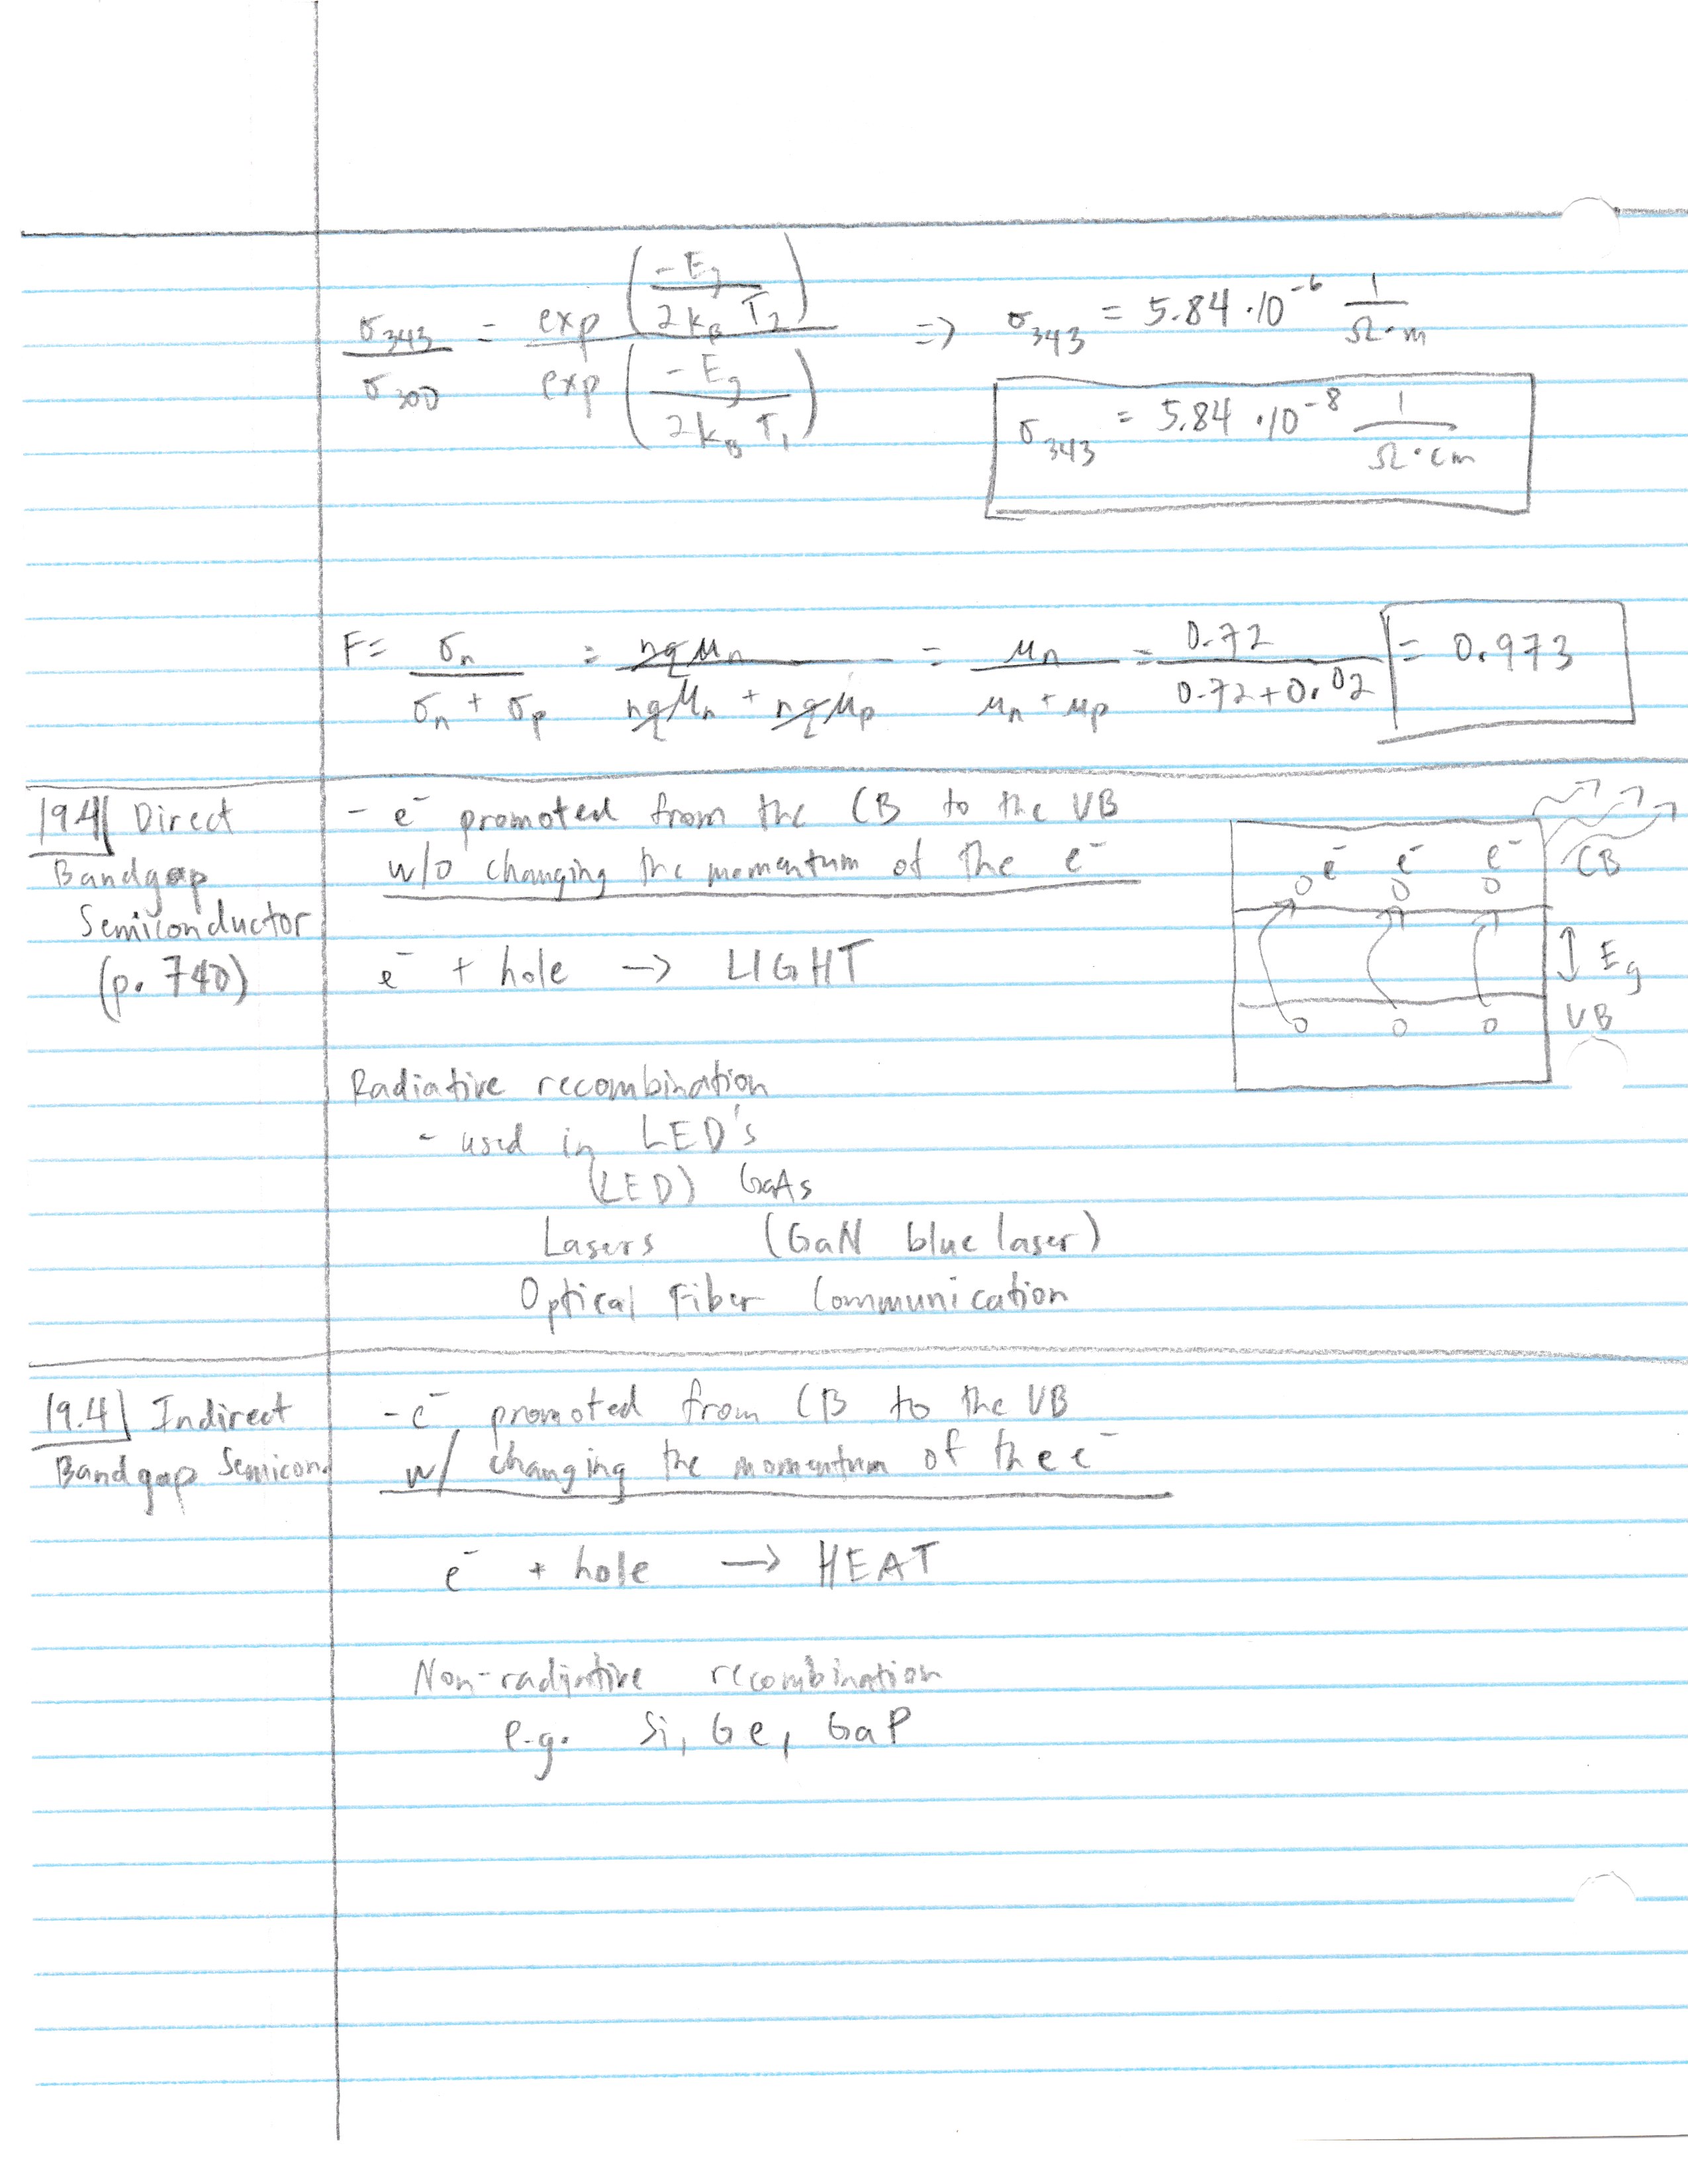 σ₃₄₃/σ₃₀₀ = exp(-Eg/(2k_B T₂)) / exp(-Eg/(2k_B T₁)) => σ₃₄₃ = 5.84 · 10⁻⁶ 1/(Ω·m)
σ₃₄₃ = 5.84 · 10⁻⁸ 1/(Ω·cm)
F = σn/(σn + σp) = nqμn/(nqμn + nqμp) = μn/(μn + μp) = 0.72/(0.72+0.02) = 0.973
19.4 Direct
Bandgap
Semiconductor
(p. 740)
- e⁻ promoted from the CB to the VB
w/o changing the momentum of the e⁻
e⁻ + hole -> LIGHT
e⁻ e⁻ e⁻ CB
Eg
VB
Radiative recombination
- used in LED's
(LED) GaAs
Lasers (GaN blue laser)
Optical Fiber Communication
19.4 Indirect
Bandgap Semicon.
- e⁻ promoted from CB to the VB
w/ changing the momentum of the e⁻
e⁻ + hole -> HEAT
Non-radiative recombination
e.g. Si, Ge, GaP